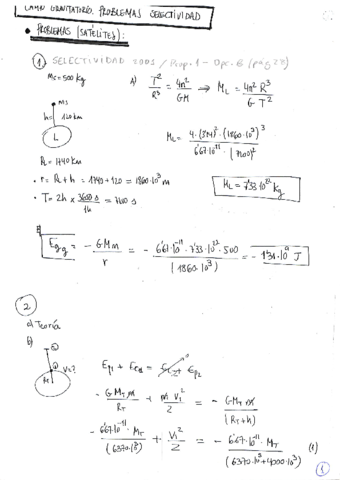 CAMPO GRAVITATORIO. PROBLEMAS SELECTIVIDAD
• PROBLEMAS (SATÉLITES):
① SELECTIVIDAD 2001 / Prop. 1 - Opc. B (pág 28)
Mc = 500 kg
A) T²/R³ = 4π²/GM → M_L = 4π² R³/G T²
MS
h = 120 km
L
M_L = 4·(3'14)²·(1860·10³)³/6'67·10⁻¹¹·(7200)²
R_L = 1740 km
• r = R_L + h = 1740 + 120 = 1860·10³ m
• T = 2h × 3600 s/1h = 7200 s
M_L = 7'33·10²² kg
B)
E_pg = - G M m/r = - 6'67·10⁻¹¹·7'33·10²²·500/(1860·10³) = - 1'31·10⁹ J
②
a) Teoría
b)
② 
① V₁?
R_T
E_p1 + E_c1 = E_c2 + E_p2
- G M_T m/R_T + m V₁²/2 = - G M_T m/(R_T + h)
- 6'67·10⁻¹¹·M_T/(6370·10³) + V₁²/2 = - 6'67·10⁻¹¹·M_T/(6370·10³ + 4000·10³) (1)
①